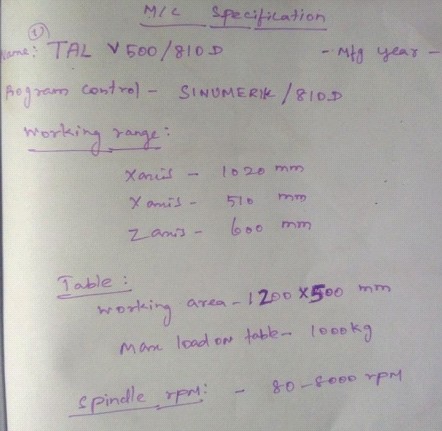 M/C Specification
①
Name: TAL V500/810D - Mfg year -
Program control - SINUMERIK/810D
Working range:
X axis - 1020 mm
X axis - 510 mm
Z axis - 600 mm
Table:
working area - 1200 x 500 mm
Max load on table - 1000kg
Spindle rpm: - 80-8000 rpm